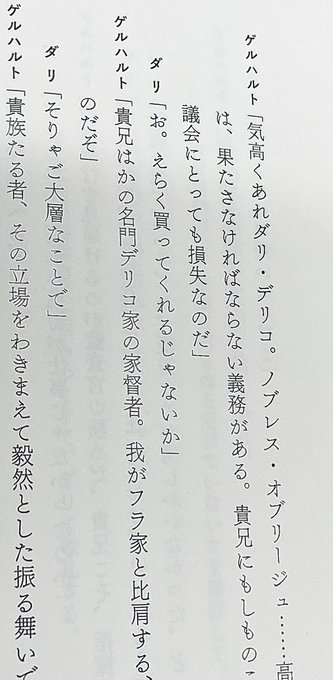 ゲルハルト「気高くあれダリ・デリコ。ノブレス・オブリージュ……高
は、果たさなければならない義務がある。貴兄にもしもの
議会にとっても損失なのだ」
ダリ「お。えらく買ってくれるじゃないか」
ゲルハルト「貴兄はかの名門デリコ家の家督者。我がフラ家と比肩する、
のだぞ」
ダリ「そりゃご大層なことで」
ゲルハルト「貴族たる者、その立場をわきまえて毅然とした振る舞いで